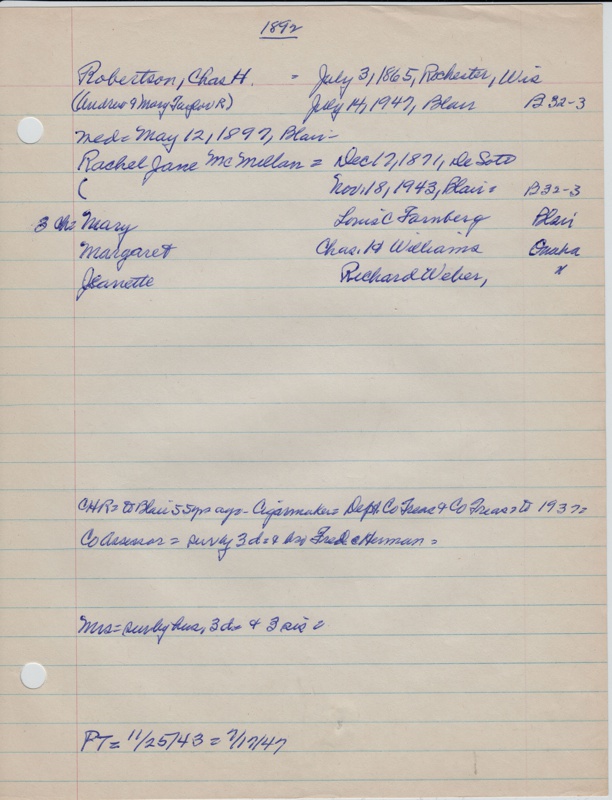 1892
Robertson, Chas H. = July 3, 1865, Rochester, Wis
(Andrew & Mary Taylor R) July 14, 1947, Blair B 32-3
med= May 12, 1897, Blair=
Rachel Jane McMillan = Dec 17, 1871, De Soto
( Nov. 18, 1943, Blair= B32-3
3 Ch= Mary Louis C Farnberg Blair
Margaret Chas. H Williams Omaha
Jeanette Richard Weber, x
CHR= to Blair 55 yrs ago - Cigarmaker= Dept Co Treas & Co Treas= to 1937=
Co Assessor = surv by 3 d= & bro Fred & Herman =
Mrs= surv by hus, 3 d= & 3 sis =
PT= 11/25/43 = 7/17/47